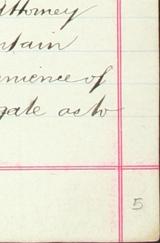 Attorney
ntain
nience of
gate as to
5